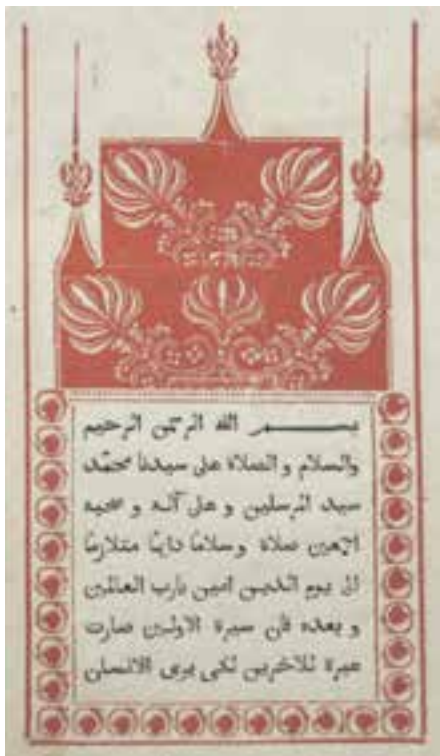 بسم الله الرحمن الرحيم
والسلام و الصلاة على سيدنا محمّد
سيد المرسلين و على آله و صحبه
اجمعين صلاة وسلامًا دايمًا متلازمًا
الى يوم الدين امين يارب العالمين
و بعده فان سيرة الاولين صارت
عبرة للاخرين لكى يرى الانسان